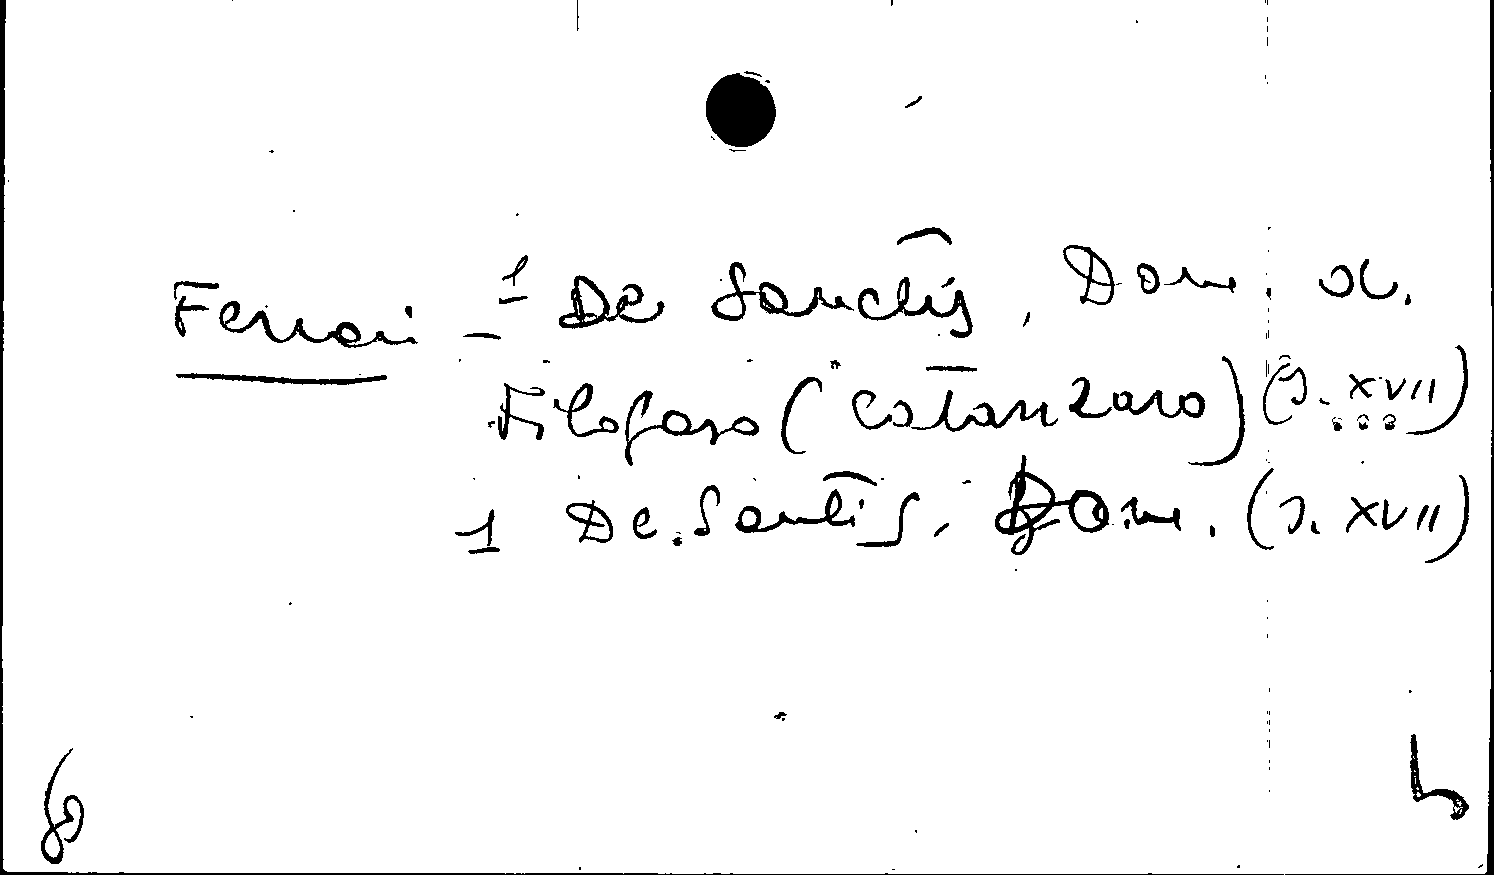 Ferrari - 1 De Sanctis, Dom. a.
Filogaso (Catanzaro) (s. XVII)
1 De Santis, Dom. (s. XVII)